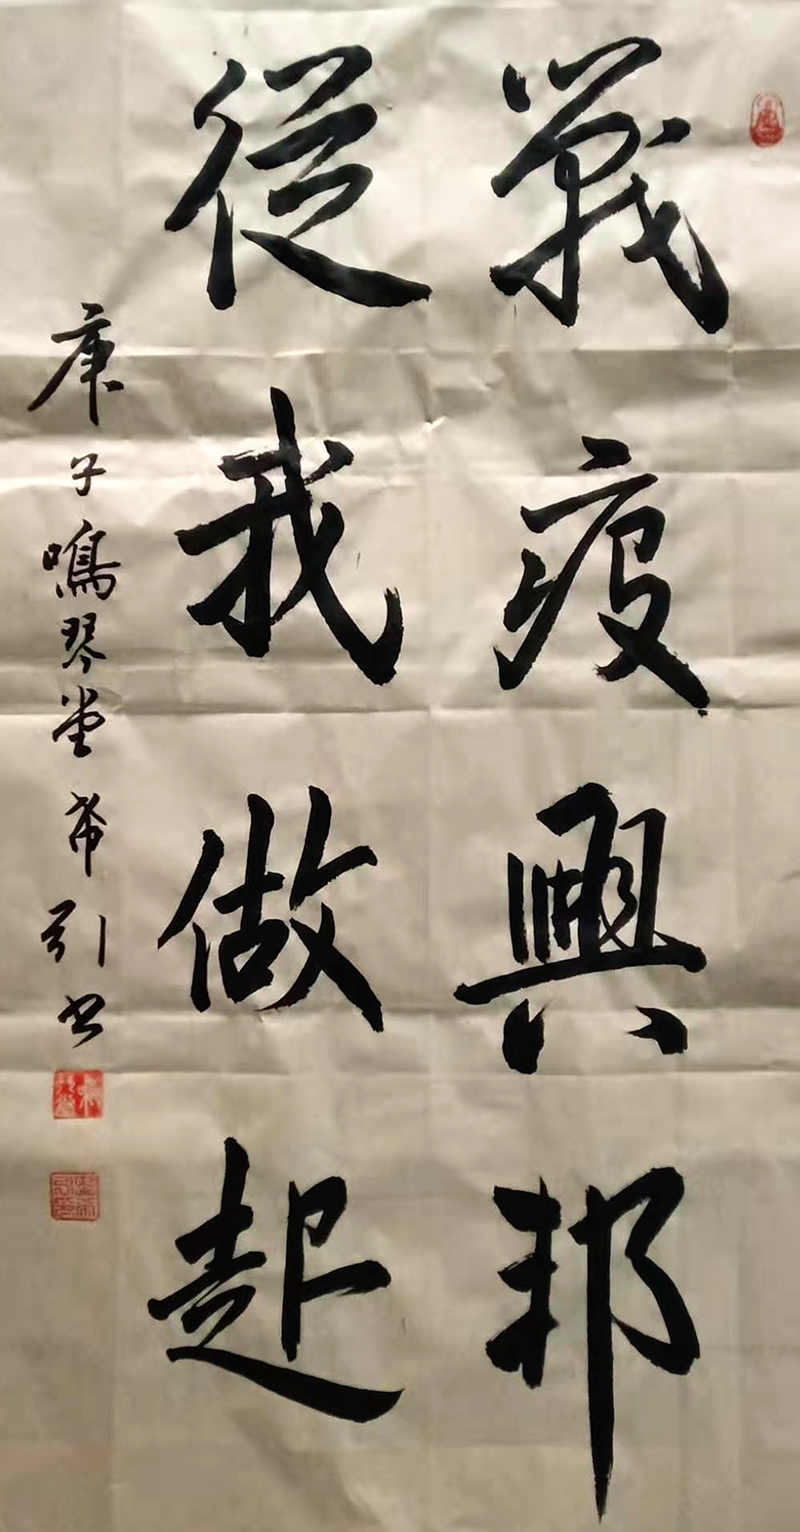 戰疫興邦
從我做起
庚子鳴琴堂希引书